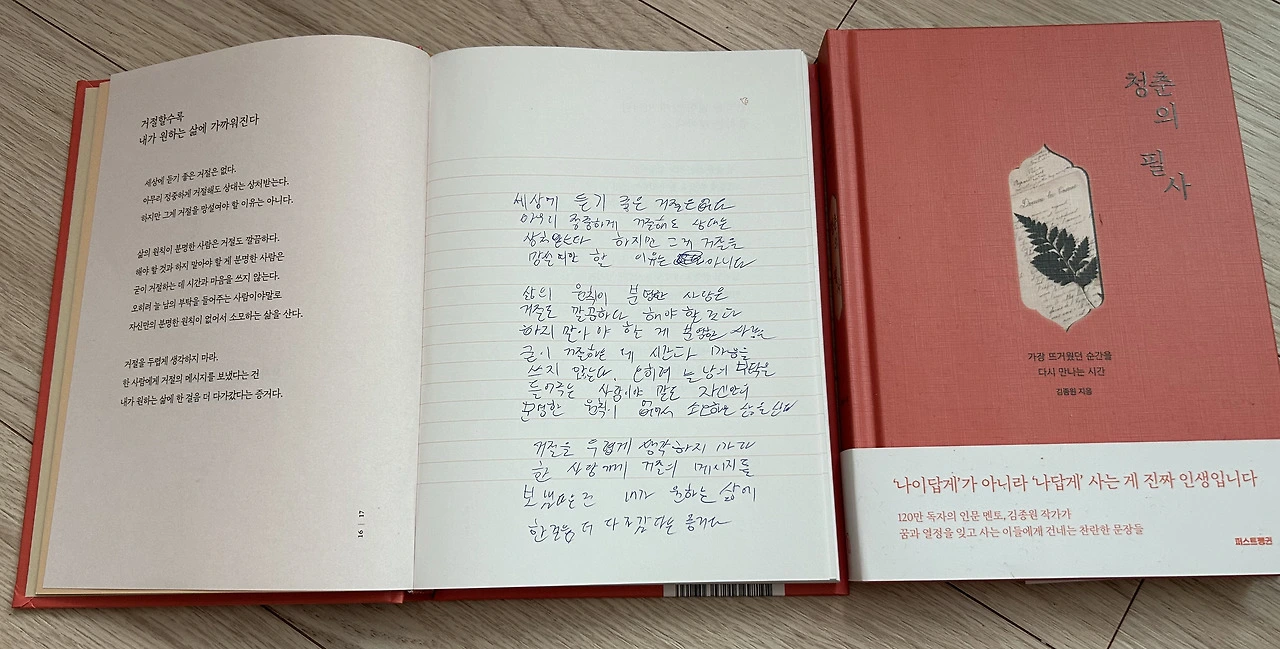 거절할수록
내가 원하는 삶에 가까워진다
세상에 듣기 좋은 거절은 없다.
아무리 정중하게 거절해도 상대는 상처받는다.
하지만 그게 거절을 망설여야 할 이유는 아니다.
삶의 원칙이 분명한 사람은 거절도 깔끔하다.
해야 할 것과 하지 말아야 할 게 분명한 사람은
굳이 거절하는 데 시간과 마음을 쓰지 않는다.
오히려 늘 남의 부탁을 들어주는 사람이야말로
자신만의 분명한 원칙이 없어서 소모하는 삶을 산다.
거절을 두렵게 생각하지 마라.
한 사람에게 거절의 메시지를 보냈다는 건
내가 원하는 삶에 한 걸음 더 다가갔다는 증거다.
16 | 17
세상에 듣기 좋은 거절은 없다
아무리 정중하게 거절해도 상대는
상처받는다 하지만 그게 거절을
할 이유는 아니다
삶의 원칙이 분명한 사람은
거절도 깔끔하다 해야 할
하지 말아야 할 게 분명한 사람은
굳이 거절하는 데 시간과 마음을
쓰지 않는다 오히려 늘 남의 부탁을
사람이야 말로 자신만의
분명한 원칙이 없어서 소모하는 삶을 산다
거절을 두렵게 생각하지 마라
한 사람에게 거절의 메시지를
보냈다는 건 내가 원하는 삶에
한걸음 더 다가갔다는 증거다
청춘
의
필
사
가장 뜨거웠던 순간을
다시 만나는 시간
김종원 지음
‘나이답게’가 아니라 ‘나답게’ 사는 게 진짜 인생입니다
120만 독자의 인문 멘토, 김종원 작가가
꿈과 열정을 잊고 사는 이들에게 건네는 찬란한 문장들
퍼스트펭귄